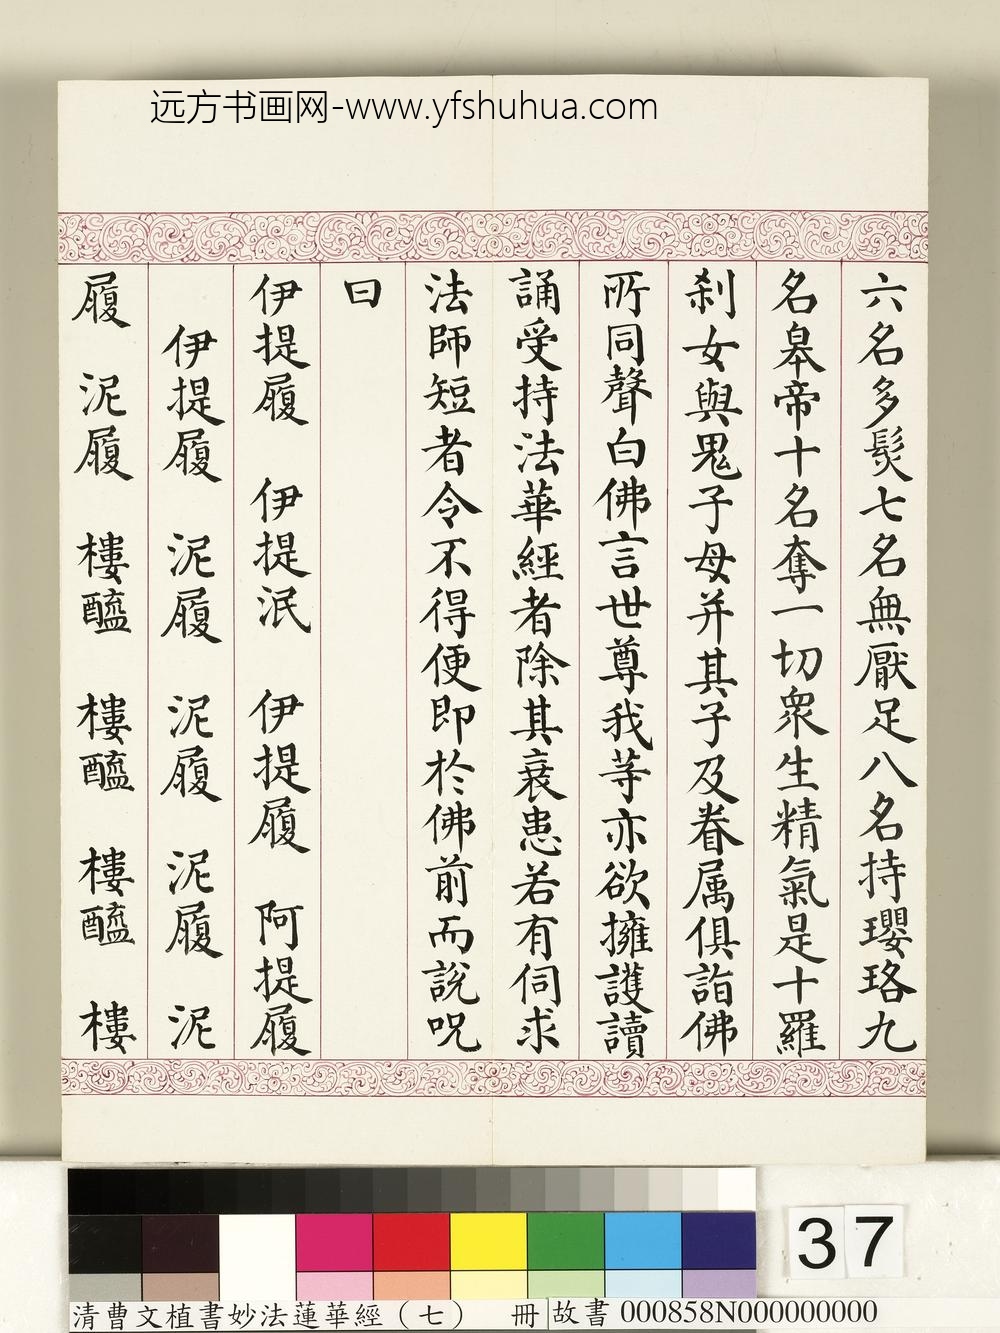 远方书画网-www.yfshuhua.com
六名多髮七名無厭足八名持瓔珞九
名皋帝十名奪一切衆生精氣是十羅
剎女與鬼子母并其子及眷属俱詣佛
所同聲白佛言世尊我等亦欲擁護讀
誦受持法華經者除其衰患若有伺求
法師短者令不得便即於佛前而說呪
曰
伊提履 伊提泯 伊提履 阿提履
伊提履 泥履 泥履 泥履 泥
履 泥履 樓醯 樓醯 樓醯 樓
37
清曹文植書妙法蓮華經（七） 冊 故書 000858N000000000